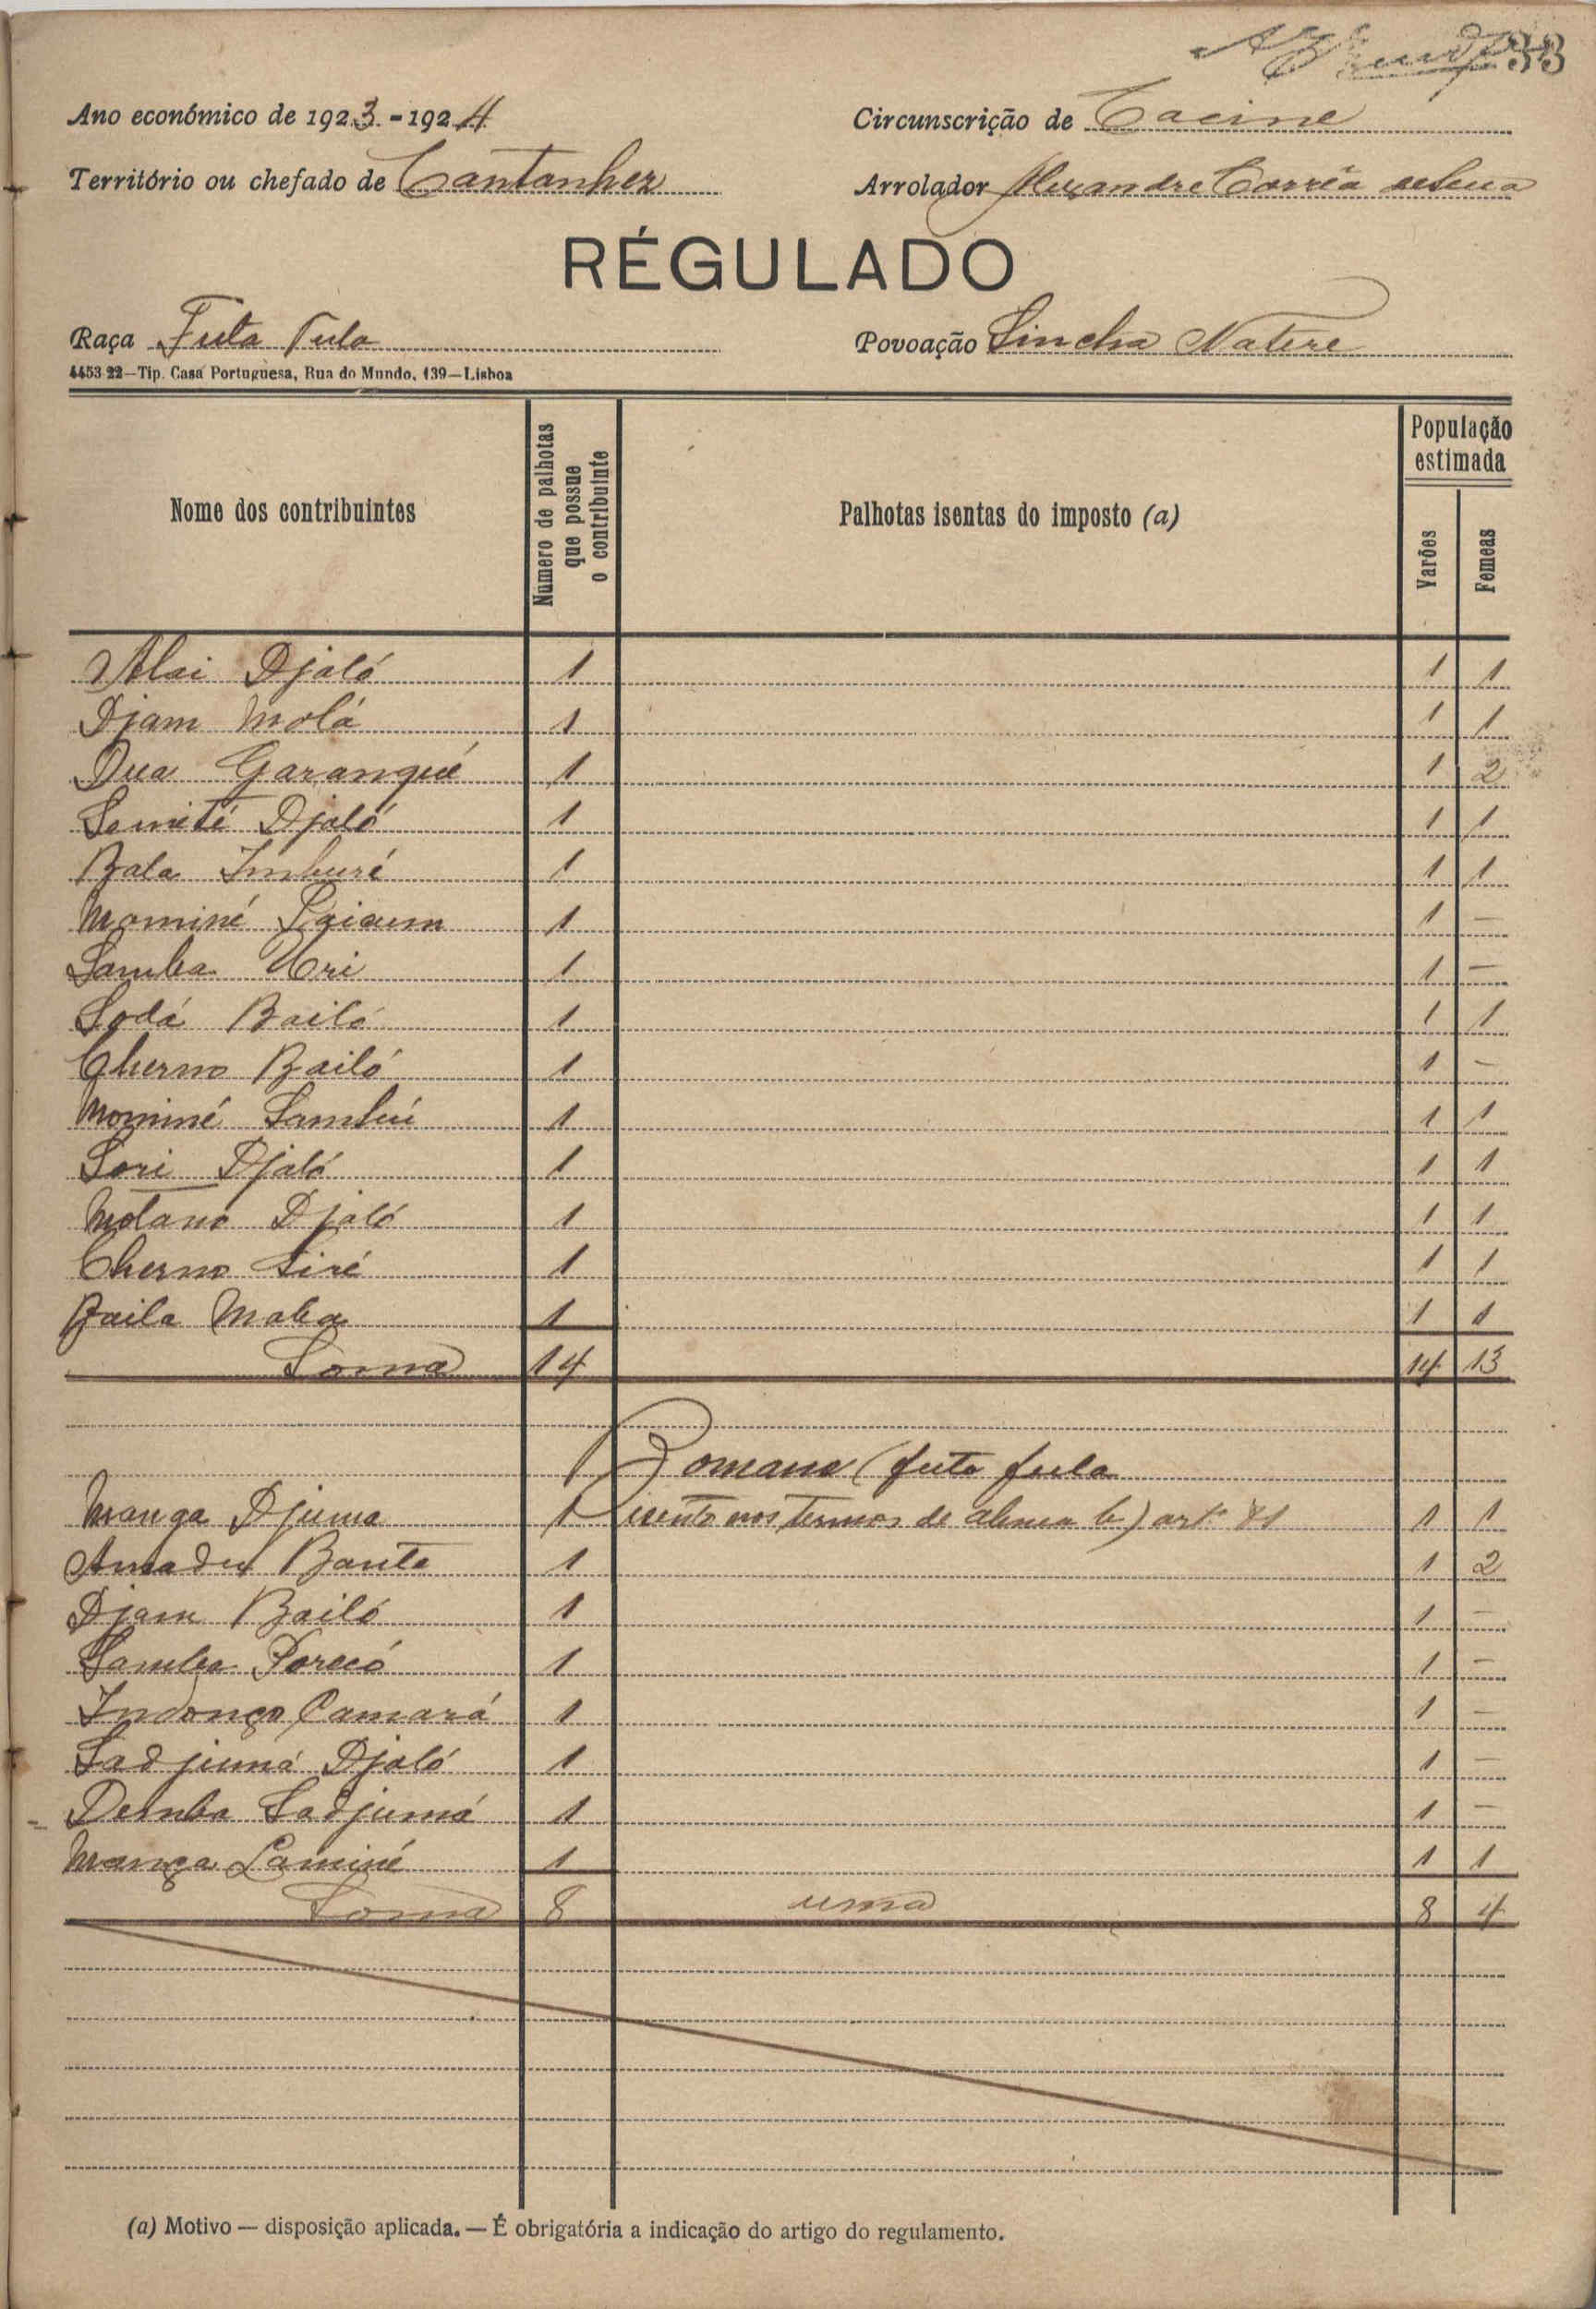 33
Ano económico de 1923-1924 Circunscrição de Cacine
Território ou chefado de Cantanhez Arrolador Alexandre Corrêa de Sena
RÉGULADO
Raça Futa Fula Povoação Sincha Natere
4453 22—Tip. Casa Portuguesa, Rua do Mundo, 139—Lisboa
Nome dos contribuintes Número de palhotas que possue o contribuinte Palhotas isentas do imposto (a) População estimada Varões Femeas
Alai Djaló 1 1 1
Djam Molá 1 1 1
Dua Garangué 1 1 2
Djaló 1 1 1
Bala Imburé 1 1 1
Mominé 1 1 —
Samba Uri 1 1 —
Sodá Bailó 1 1 1
Cherno Bailó 1 1 —
Mominé Sambú 1 1 1
Sori Djaló 1 1 1
Motaro Djaló 1 1 1
Cherno Siré 1 1 1
Baila Maba 1 1 1
Soma 14 14 13
(futa fula
Manga Djuma 1 isento nos termos de alinea b) artº 81 1 1
Amadu Banta 1 1 2
Djam Bailó 1 1 —
Samba Porecó 1 1 —
Indonço Camará 1 1 —
Sadjumá Djaló 1 1 —
Demba Sadjumá 1 1 —
Mança Laminé 1 1 1
Soma 8 uma 8 4
(a) Motivo — disposição aplicada. — É obrigatória a indicação do artigo do regulamento.